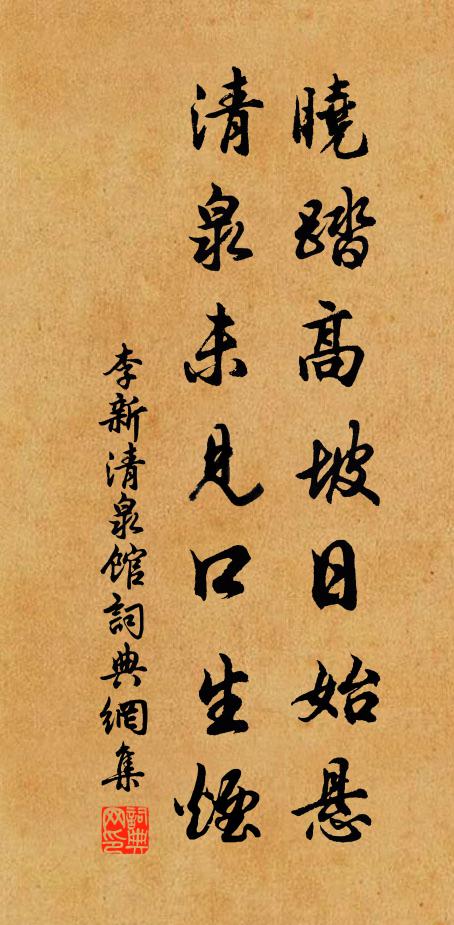 曉踏高坡日始懸
清泉未見口生煙
李新清泉館詞典網集
詞典网印